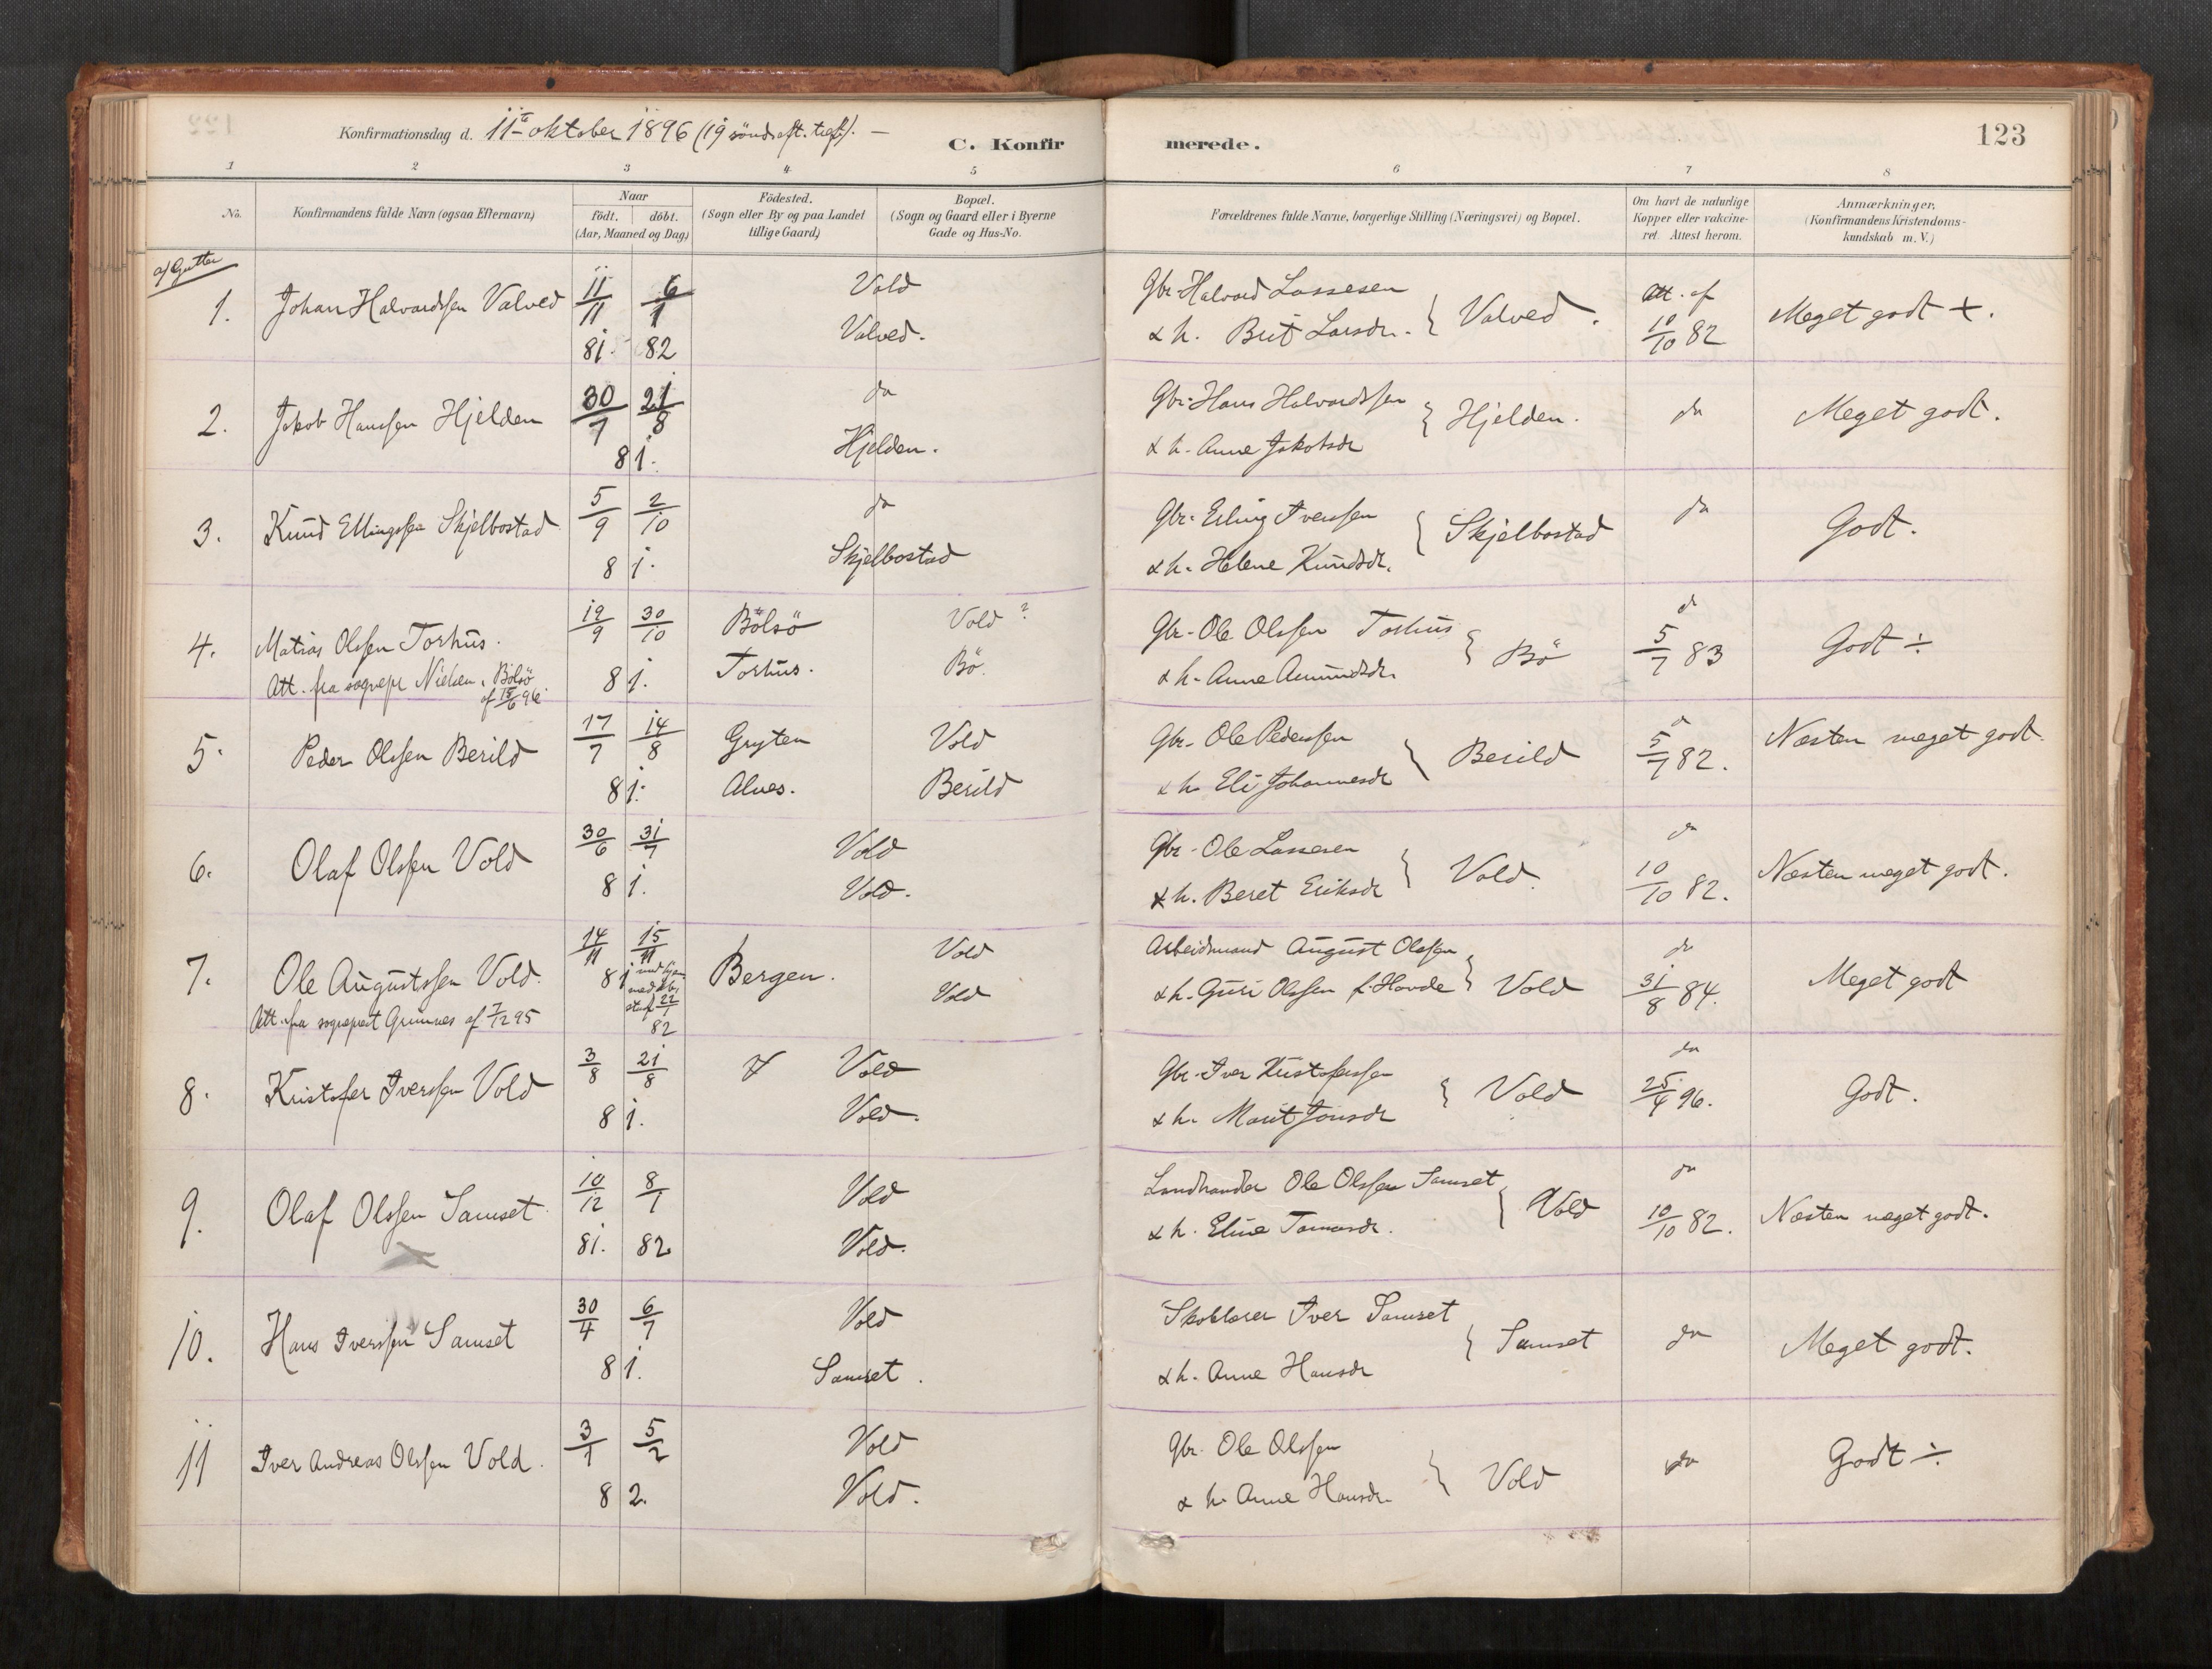 Konfirmationsdag d. 11te oktober 1896 (19 sönd. eft. tref.). —
C. Konfirmerede.
123
1 2 3 4 5 6 7 8
No.
Konfirmandens fulde Navn (ogsaa Efternavn)
Naar
födt. döbt.
(Aar, Maaned og Dag)
Födested.
(Sogn eller By og paa Landet
tillige Gaard)
Bopæl.
(Sogn og Gaard eller i Byerne
Gade og Hus-No.
Forældrenes fulde Navne, borgerlige Stilling (Næringsvei) og Bopæl.
Om havt de naturlige
Kopper eller vakcine-
ret. Attest herom.
Anmærkninger,
(Konfirmandens Kristendoms-
kundskab m. V.)
a) Gutter
1. Johan Halvardssen Valved 11/11 81. 6/1 82
Vold
Valved.
Gbr. Halvard Lassesen
& h. Brit Larsdr. } Valved.
Att. af
10/10 82
Meget godt +.
2. Jakob Hanssen Hjelden 30/7 21/8 81.
do
Hjelden.
Gbr. Hans Halvardssen
& h. Anne Jakobsdr } Hjelden.
do
Meget godt.
3. Knud Ellingssen Skjelbostad 5/9 2/10 81.
do
Skjelbostad
Gbr. Erling Iverssen
& h. Helene Knudsdr. } Skjelbostad
do
Godt.
4. Matias Olssen Torhus. 19/9 30/10 81.
Att. fra sognepr Nielsen i Bolsö
af 15/6 96
Bolsö
Torhus.
Vold ?
Bö.
Gbr. Ole Olssen Torhus
& h. Anne Amundsdr. } Bö
do
5/7 83
Godt ÷
5. Peder Olssen Berild 17/7 14/8 81.
Gryten
Alnes.
Vold
Berild
Gbr. Ole Pederssen
& h. Eli Johannesdr } Berild
do
5/7 82.
Næsten meget godt.
6. Olaf Olssen Vold 30/6 31/7 81.
Vold
Vold.
Gbr. Ole Lassesen
& h. Beret Eriksdr } Vold.
do
10/10 82.
Næsten meget godt.
7. Ole Augustssen Vold. 14/11 15/11 81
22/1
82
Att. fra sogneprest Grimnes af 7/12 95
Bergen.
Vold
Vold
Arbeidsmand August Olssen
& h. Guri Olssen f. Hovde } Vold
do
31/8 84.
Meget godt
8. Kristofer Iverssen Vold 3/8 21/8 81.
Vold
Vold.
Gbr. Iver Kristoferssen
& h. Marit Jonsdr } Vold
do
25/4 96.
Godt.
9. Olaf Olssen Samset 10/12 81. 8/1 82
Vold
Vold.
Landhandler Ole Olssen Samset
& h. Eline Tomasdr. } Vold
do
10/10 82.
Næsten meget godt.
10. Hans Iverssen Samset 30/4 6/7 81.
Vold
Samset.
Skolelærer Iver Samset
& h. Anne Hansdr } Samset
do
Meget godt.
11 Iver Andreas Olssen Vold. 3/1 5/2 82.
Vold
Vold.
Gbr. Ole Olssen
& h. Anne Hansdr } Vold
do
Godt ÷